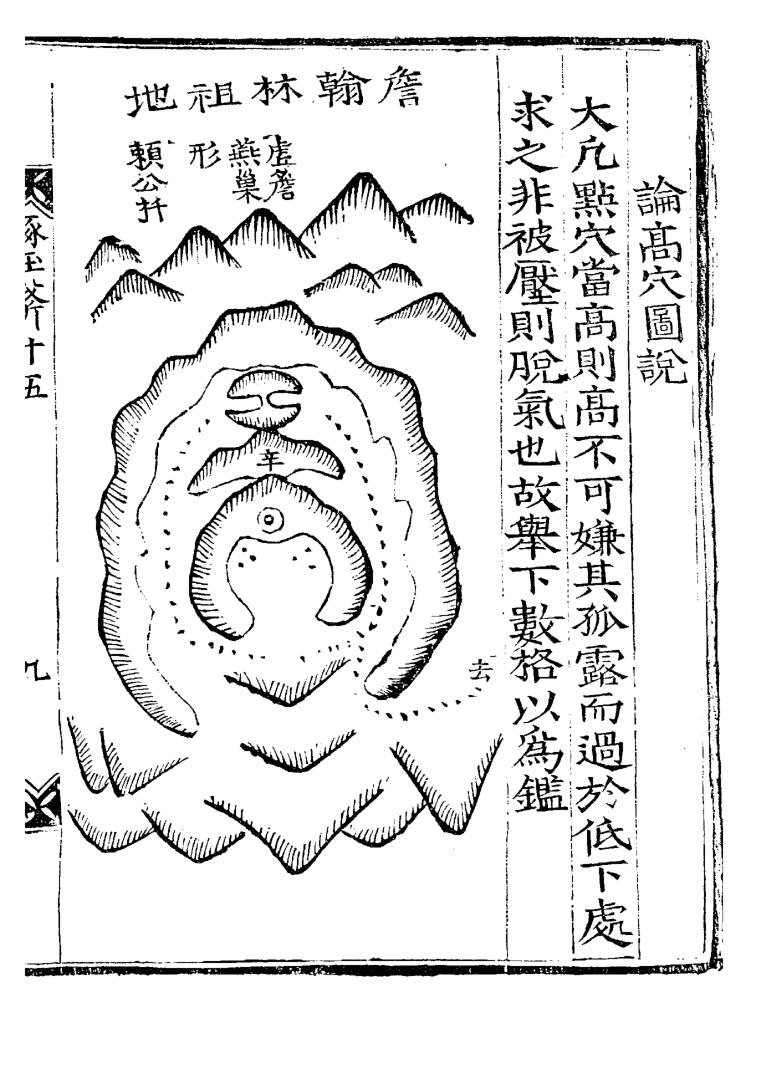 論髙穴圖說
大凡點穴當髙則髙不可嫌其孤露而過於低下處
求之非被壓則脫氣也故舉下數格以爲鑑
詹翰林祖地
虛詹
燕巢
形
賴公扦
辛
去
琢玉斧十五
九